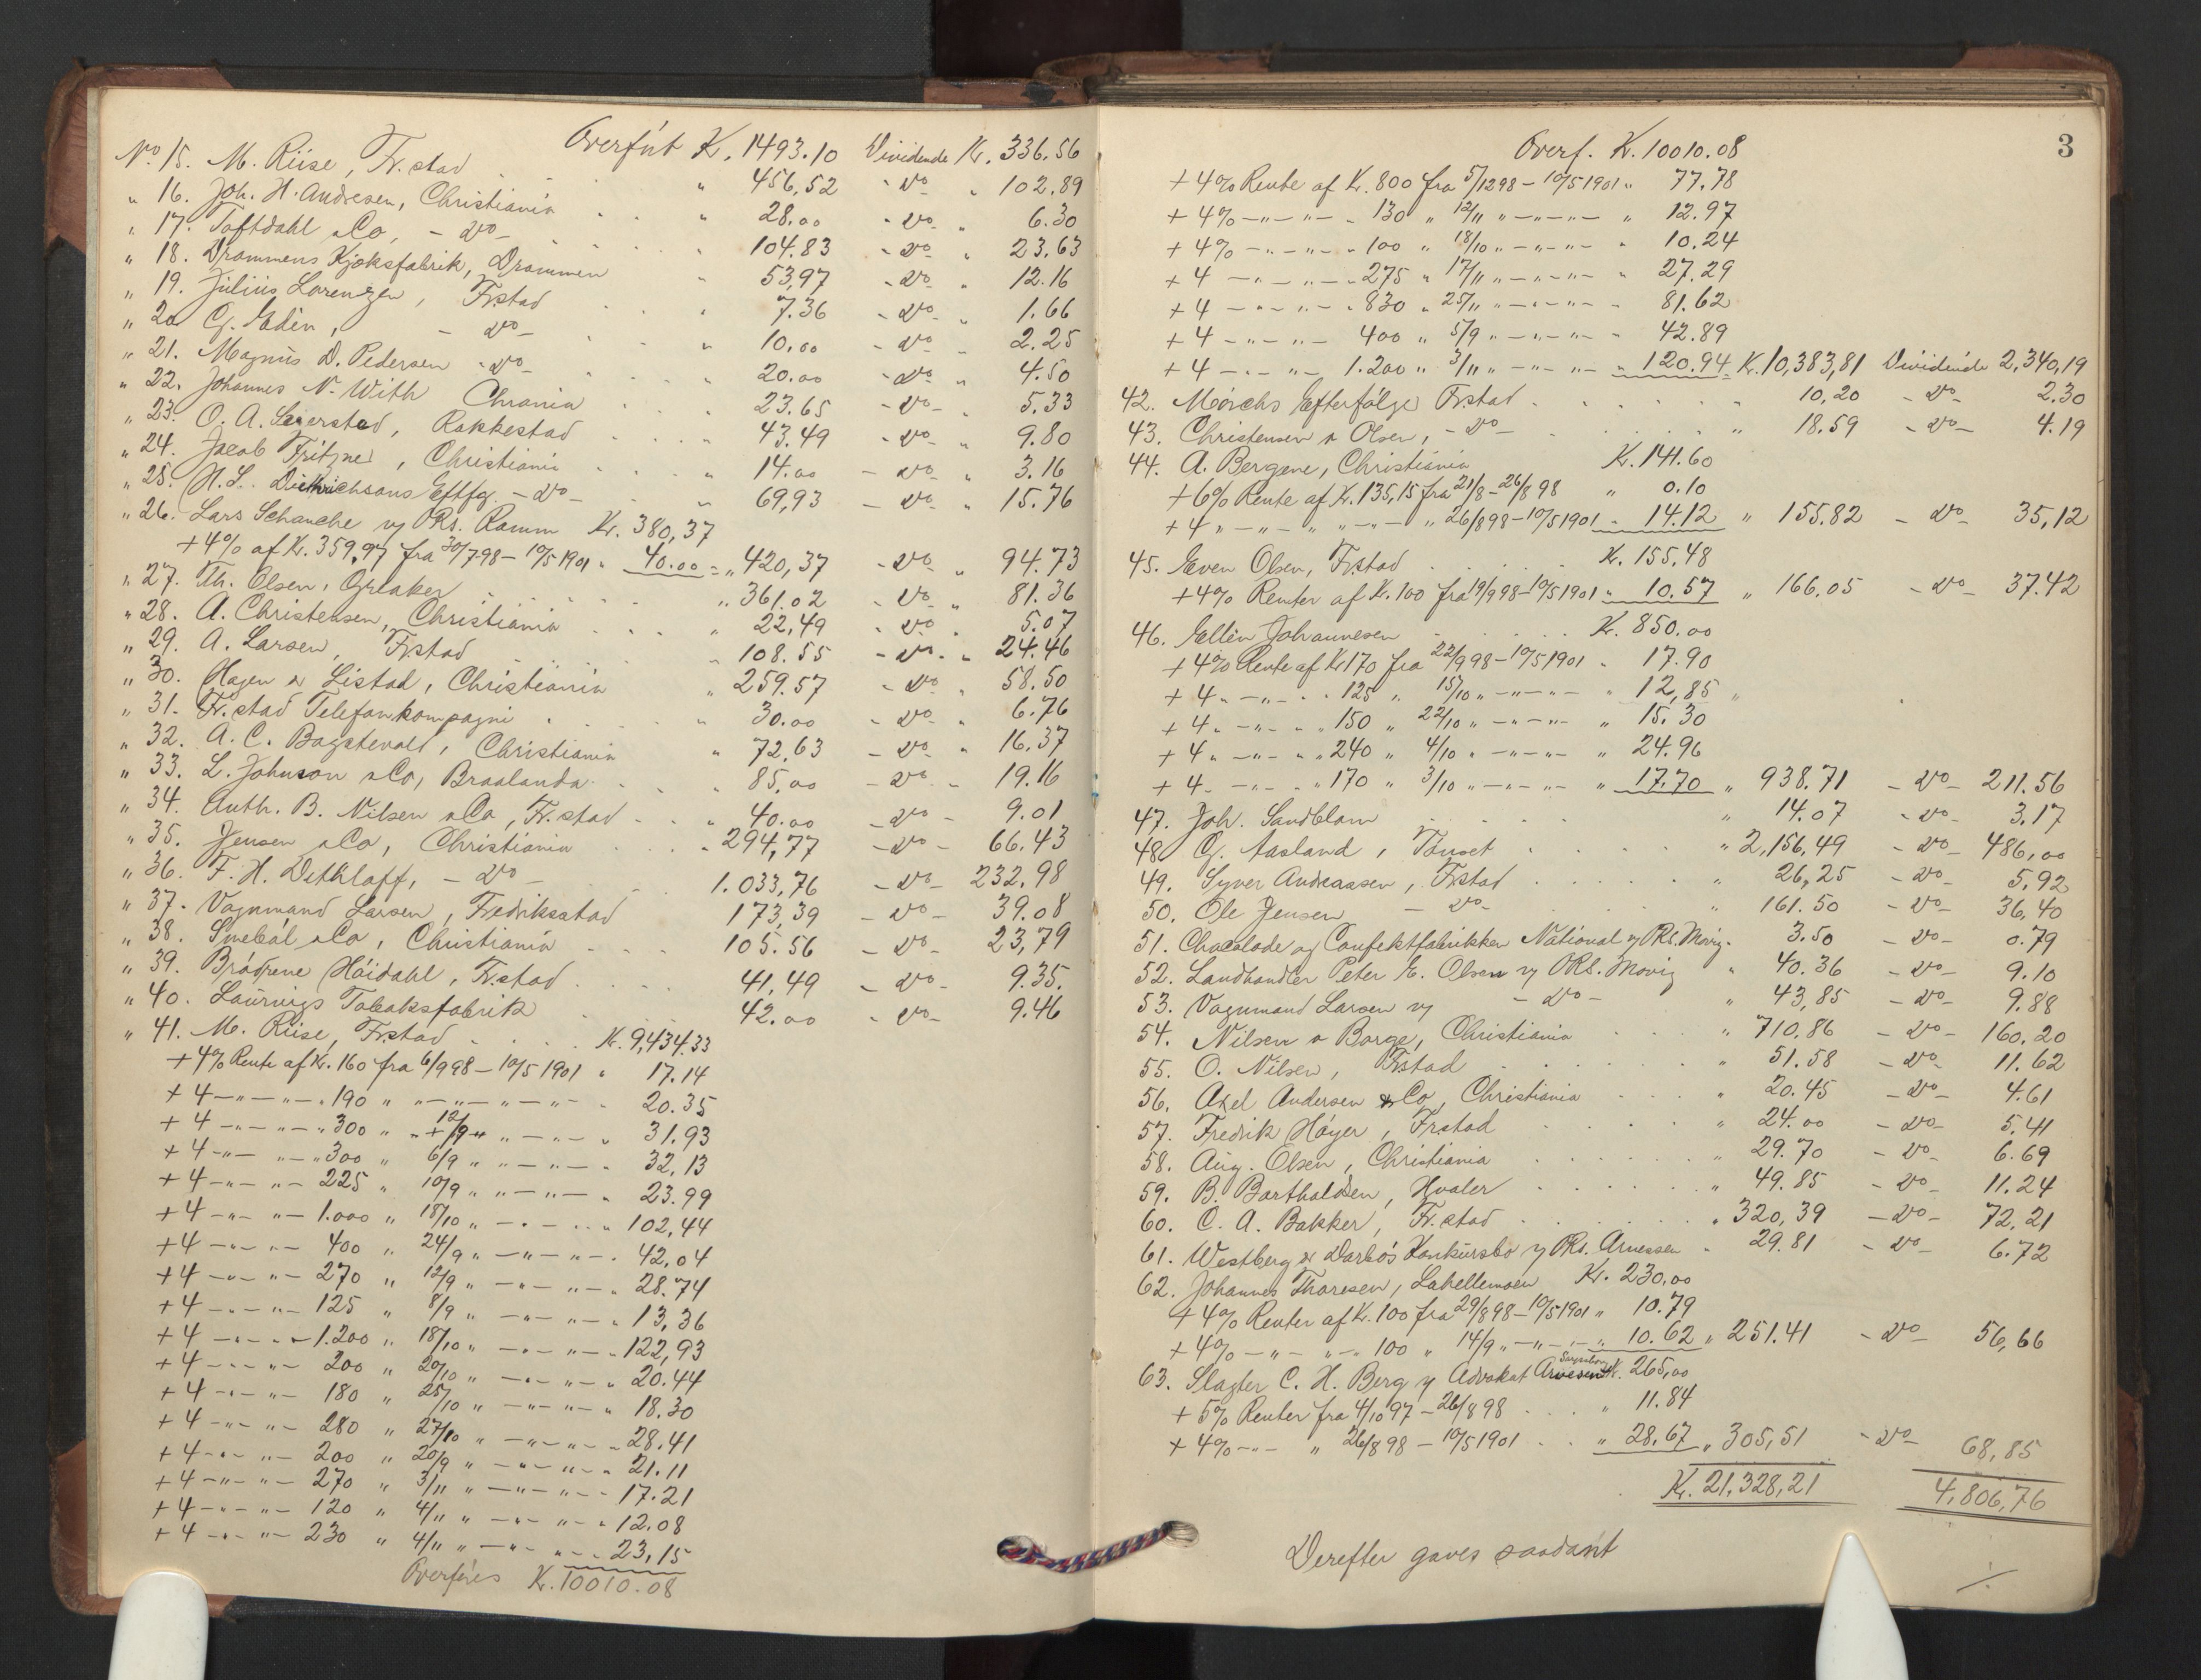 Overført Kr. 1493.10 Dividende Kr. 336.56
No 15. M. Riise, Fr.stad . . . " 456,52 - do - " 102.89
" 16. Joh. H. Andresen, Christiania . . " 28.00 - do - " 6.30
" 17. Toftdahl & Co, - do - . . . 104.83 - do - " 23,63
" 18. Drammens Kjæksfabrik, Drammen " 53,97 - do - " 12.16
" 19. Julius Lorenzen, Frstad . . " 7.36 - do - " 1.66
" 20 G. Edin, - do - . . " 10.00 - do - " 2.25
" 21. Magnus D. Pedersen - do - . . " 20.00 - do - " 4.50
" 22. Johannes N. With Chrania . . " 23.65 - do - " 5.33
" 23. O. A. Seierstad, Rakkestad . . " 43.49 - do - " 9.80
" 24. Jacob Fritzner, Christiania . . " 14.00 - do - " 3.16
" 25. H. L. Diethrichsons Eftfg. - do - " 69,93 - do - " 15.76
" 26. Lars Schanche v/ ORs. Ramm Kr. 380,37
+ 4% af Kr. 359,97 fra 30/7 98 - 10/5 1901 " 40.00 = " 420,37 - do - " 94.73
" 27. Th. Olsen, Grlaker . . . " 361.02 - do - " 81.36
" 28. A. Christensen, Christiania . . " 22,49 - do - " 5.07
" 29. A. Larsen, Frstad . . " 108.55 - do - " 24.46
" 30. Hagen & Listad, Christiania " 259.57 - do - " 58.50
" 31. Fr.stad Telefonkompagni . . " 30.00 - do - " 6.76
" 32. A. C. Bagstevold, Christiania " 72,63 - do - " 16,37
" 33. L. Johnson & Co, Braalanda . . " 85,00 - do - " 19.16
" 34. Anth. B. Nilsen & Co, Fr.stad . . " 40.00 - do - 9.01
" 35. Jensen & Co, Christiania . . . " 294,77 - do - 66.43
" 36. F. H. Dethloff, - do - . . 1.033,76 - do - 232.98
" 37. Vognmand Larsen, Fredriksstad 173,39 - do - 39.08
" 38. Smebøl & Co, Christiania . . . 105.56 - do - 23,79
" 39. Brødrene Høidahl, Fr.stad . . . 41,49 - do - 9.35.
" 40. Laurvigs Tobaksfabrik . . 42.00 - do - 9.46
" 41. M. Riise, Frstad . . . . Kr. 9,434.33
+ 4% Rente af Kr. 160 fra 6/9 98 - 10/5 1901 " 17.14
+ 4 - " - " - " 190 " " - " - " - " - " 20.35
+ 4 - " - " - " 300 " 12/9 " - " - " - " 31.93
+ 4 - " - " - " 300 " 6/9 " " - " - " 32,13
+ 4 - " - " - 225 " 10/9 " " - " - " 23.99
+ 4 - " - " - 1.000 " 18/10 " - " - " 102,44
+ 4 - " - " - 400 " 24/9 " - " - " - " 42,04
+ 4 - " - " - 270 " 12/9 " - " - " - " 28.74
+ 4 - " - " - 125 " 8/9 " - " - " - " 13,36
+ 4 - " - " - 1.200 " 18/10 " - " - " - " 122,93
+ 4 - " - " - 200 " 20/10 " - " - " - " 20.44
+ 4 - " - " - 180 " 25/10 " - " - " - " 18.30
+ 4 - " - " - 280 " 27/10 " - " - " - " 28.41
+ 4 - " - " - 200 " 20/9 " - " - " - " 21.11
+ 4 - " - " - 270 " 3/11 " - " - " - " 17.21
+ 4 - " - " - 120 " 4/11 " - " - " - " 12.08
+ 4 - " - " - 230 " 4/11 " - " - " - " 23,15
Overføres Kr. 10010.08
3
Overf. Kr. 10010.08
+ 4% Rente af Kr. 800 fra 5/12 98 - 10/5 1901 " 77.78
+ 4% - " - " - " 130 " 12/11 " - " - " - " 12.97
+ 4% - " - " - " 100 " 18/10 " - " - " - " 10.24
+ 4 - " - " - " 275 " 17/11 " - " - " - " 27.29
+ 4 - " - " - " 830 " 25/11 " - " - " - " 81.62
+ 4 - " - " - 400 " 5/9 " - " - " - " 42.89
+ 4 - " - " - 1.200 " 3/11 " - " - " - " 120.94 Kr. 10,383,81 Dividende 2,340,19
42. Mørchs Efterfølger Frstad . . . . . . " 10,20 - do - 2.30
43. Christensen & Olsen, - do - . . . . . " 18.59 - do - 4.19
44. A. Bergene, Christiania Kr. 141.60
+ 6% Rente af Kr. 135,15 fra 21/8 - 26/8 98 " 0.10
+ 4 " - " - " " - " - " 26/8 98 - 10/5 1901 " 14.12 " 155.82 - do - 35,12
45. Even Olsen, Frstad . . . . Kr. 155,48
+ 4% Renter af Kr. 100 fra 19/9 98 - 10/5 1901 " 10.57 " 166.05 - do - 37.42
46. Ellen Johannesen . . . . . Kr. 850.00
+ 4% Rente af Kr 170 fra 22/9 98 - 10/5 1901 " 17.90
+ 4 " - " - " 125 " 15/10 " - " - " - " 12,85 "
+ 4 " - " - " 150 " 22/10 " - " - " - " 15.30
+ 4 " - " - " 240 " 4/10 " - " - " - " 24.96
+ 4 " - " - " 170 " 3/10 " - " - " - " 17.70 " 938.71 - do - 211.56
47. Joh. Sandblom . . . . . " 14.07 - do - 3.17
48. G. Aasland, Tønset . . . . " 2,156,49 - do - 486,00
49. Syver Andreassen, Frstad . . . . . " 26,25 - do - 5,92
50. Ole Jensen - do - . . . . " 161.50 - do - 36,40
51. Chocolade og Confektfabrikken National v/ ORs. Movig. 3.50 - do - 0.79
52. Landhandler Peter E. Olsen v/ ORs. Movig " 40.36 - do - 9.10
53. Vognmand Larsen v/ - do - " 43,85 - do - 9.88
54. Nilsen & Borge, Christiania . . . . " 710,86 - do - 160.20
55. O. Nilsen, Frstad . . . . . . " 51.58 - do - 11.62
56. Axel Andersen & Co, Christiania . . . " 20.45 - do - 4.61
57. Fredrik Høyer, Frstad . . . . . " 24.00 - do - 5.41
58. Aug. Olsen, Christiania . . . . . . " 29.70 - do - 6.69
59. B. Bartholdsen, Hvaler . . . . . . " 49.85 - do - 11.24
60. C. A. Bakker, Fr.stad . . . . . . . " 320,39 - do - 72,21
61. Westberg & Darbo's Konkursbo v/ ORs. Arnesen " 29.81 - do - 6.72
62. Johannes Thoresen, Lahellemoen Kr. 230,00
+ 4% Renter af Kr. 100 fra 29/8 98 - 10/5 1901 " 10.79
+ 4% - " - " - 100 " 14/9 " - " - " - " 10.62 " 251.41 - do - 56,66
63. Slagter C. H. Berg v/ Advokat Arnesen Kr. 265,00
+ 5% Renter fra 4/10 97 - 26/8 98 . . . " 11.84
+ 4% - " - " 26/8 98 - 10/5 1901 . . " 28,67 " 305,51 - do - 68,85
Kr. 21,328,21 4,806,76
Derefter gaves saadant